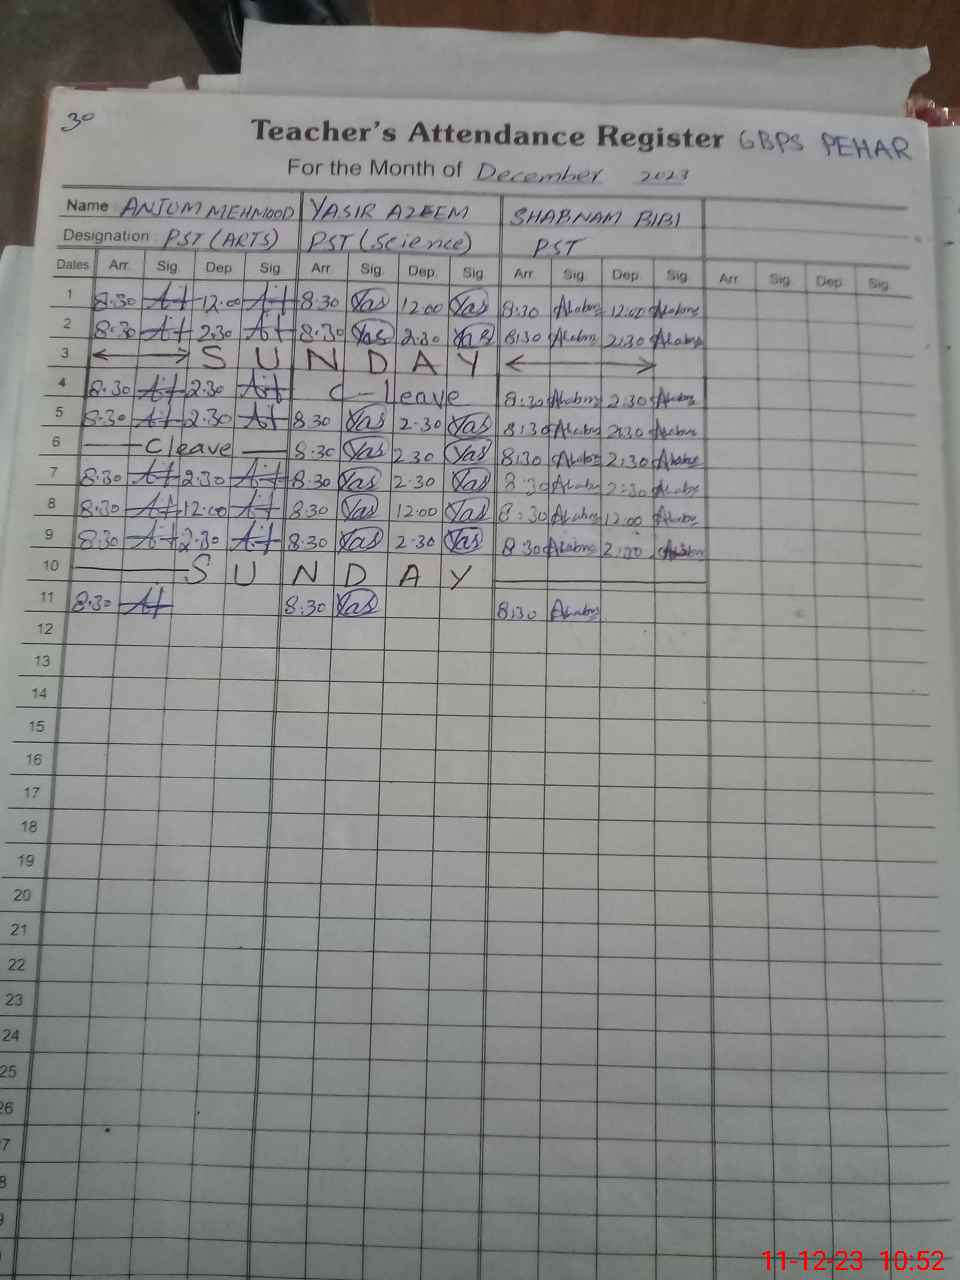 30
Teacher's Attendance Register GBPS PEHAR
For the Month of December 2023
Name: ANJUM MEHMOOD YASIR AZEEM SHABNAM BIBI
Designation: PST (ARTS) PST (Science) PST
Dates Arr. Sig. Dep. Sig. Arr. Sig. Dep. Sig. Arr. Sig. Dep. Sig. Arr. Sig. Dep. Sig.
1 8.30 12.00 8.30 Yas 12.00 Yas 8:30 12.00
2 8.30 2.30 8.30 Yas 2.30 Yas 8:30 2:30
3 SUNDAY
4 8.30 2.30 C-Leave 8:30 2:30
5 8.30 2.30 8.30 Yas 2.30 Yas 8:30 2:30
6 Cleave 8:30 Yas 2.30 Yas 8:30 2:30
7 8.30 2.30 8.30 Yas 2.30 Yas 8:30 2:30
8 8.30 12.00 8.30 Yas 12.00 Yas 8:30 12.00
9 8.30 2.30 8.30 Yas 2.30 Yas 8:30
10 SUNDAY
11 8.30 8:30 Yas 8:30
12
13
14
15
16
17
18
19
20
21
22
23
24
25
26
7
8
9
11-12-23 10:52